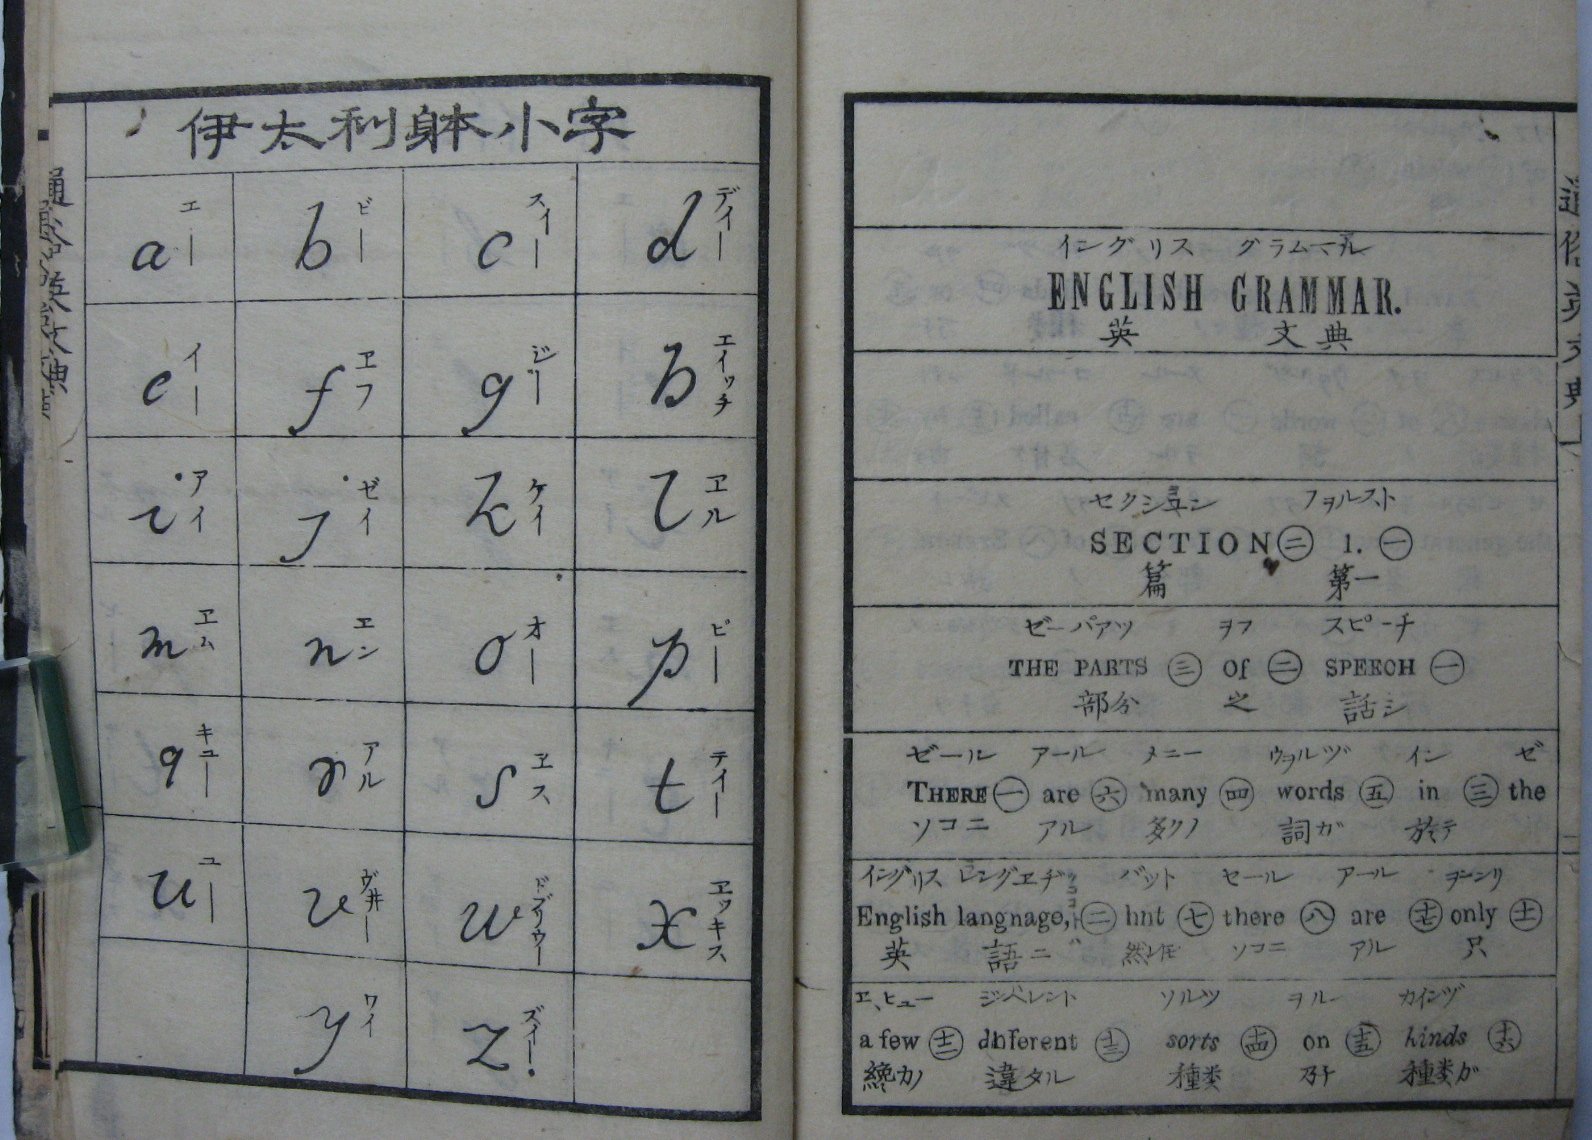 伊太利躰小字
エー ビー スイー デイー
a b c d
イー ヱフ ジー エイッチ
e f g h
アイ ゼイ ケイ ヱル
i j k l
ヱム エン オー ピー
m n o p
キュー アル ヱス テイー
q r s t
ユー ヴ井ー ドブリウー ヱッキス
u v w x
ワイ ズイー
y z.
通俗英文典
イングリス グラムマル
ENGLISH GRAMMAR.
英 文典
セクション フォルスト
SECTION 二 1. 一
篇 第一
ゼーパアツ ヲフ スピーチ
THE PARTS 三 Of 二 SPEECH 一
部分 之 話シ
ゼール アール メニー ウヲルヅ イン ゼ
THERE 一 are 六 many 四 words 五 in 三 the
ソコニ アル 多クノ 詞ガ 於テ
イングリス レングエヂ バット セール アール ヲンリ
English langnage, 二 hnt 七 there 八 are 十七 only 十一
英 語ニ 然レ𪜈 ソコニ アル 只
エ、ヒュー ジベレント ソルツ ヲル カインヅ
a few 十二 dhferent 十三 sorts 十四 on 十五 kinds 十六
纔カノ 違タル 種類 乃ト 種類ガ
通俗英文典